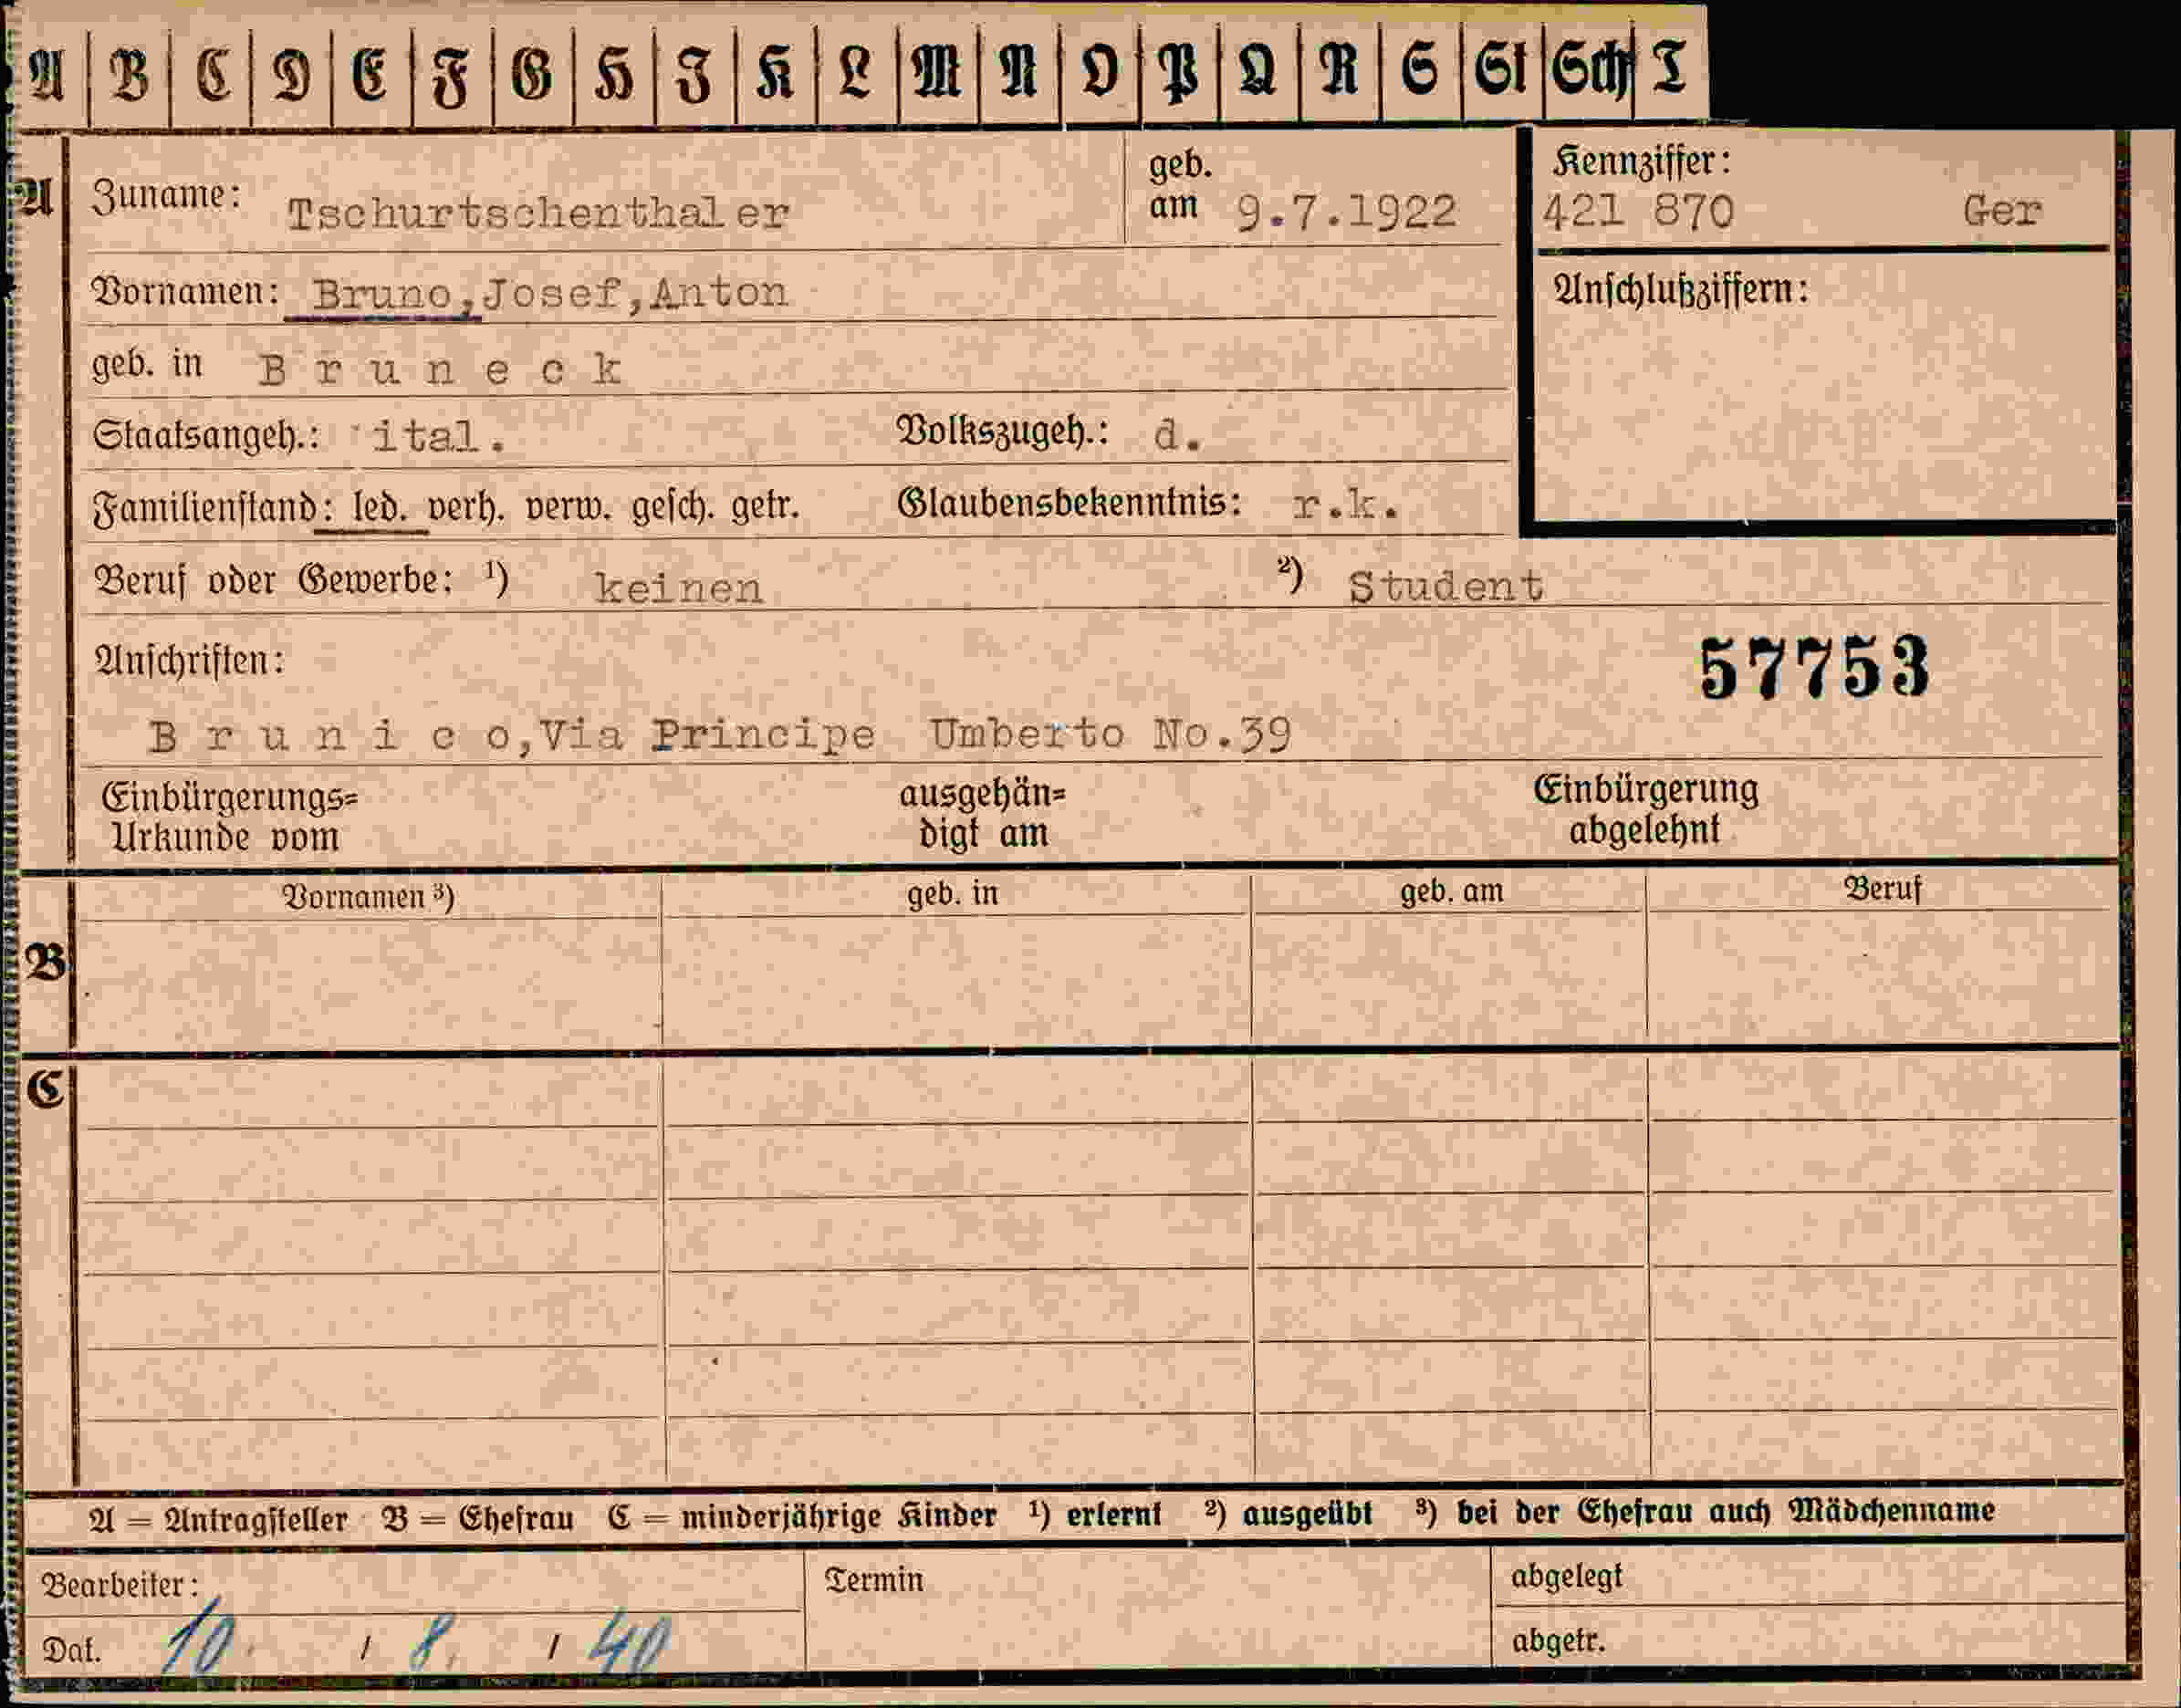 A B C D E F G H J K L M N O P Q R S St Sch T
A Zuname: Tschurtschenthaler geb. am 9.7.1922 Kennziffer: 421 870 Ger
Vornamen: Bruno,Josef,Anton Anschlußziffern:
geb. in B r u n e c k
Staatsangeh.: ital. Volkszugeh.: d.
Familienstand: led. verh. verw. gesch. getr. Glaubensbekenntnis: r.k.
Beruf oder Gewerbe: ¹) keinen ²) Student
Anschriften: 57753
B r u n i c o,Via Principe Umberto No.39
Einbürgerungs= ausgehän= Einbürgerung
Urkunde vom digt am abgelehnt
Vornamen ³) geb. in geb. am Beruf
B
C
A = Antragsteller B = Ehefrau C = minderjährige Kinder ¹) erlernt ²) ausgeübt ³) bei der Ehefrau auch Mädchenname
Bearbeiter: Termin abgelegt
Dat. 10. / 8. / 40 abgetr.